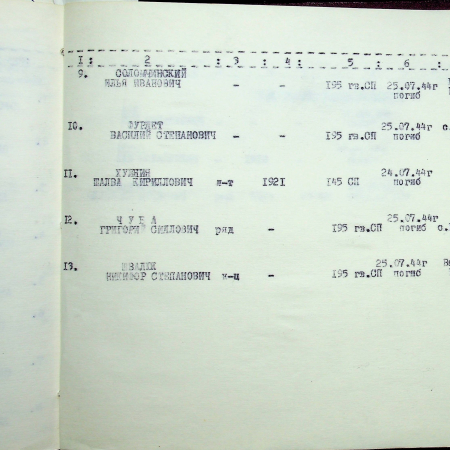 1 : 2 : 3 : 4 : 5 : 6 :
9. СОЛОМЧИНСКИЙ
ИЛЬЯ ИВАНОВИЧ - - 195 гв.СП 25.07.44г
погиб
10. 25.07.44г с.
ВАСИЛИЙ СТЕПАНОВИЧ - - 195 гв.СП погиб
11. 24.07.44г
ШАЛВА КИРИЛЛОВИЧ л-т 1921 145 СП погиб
12. Ч У В А 25.07.44г
ГРИГОРИЙ ряд - 195 гв.СП погиб с.
13. 25.07.44г
НИКИФОР СТЕПАНОВИЧ к-ц - 195 гв.СП погиб